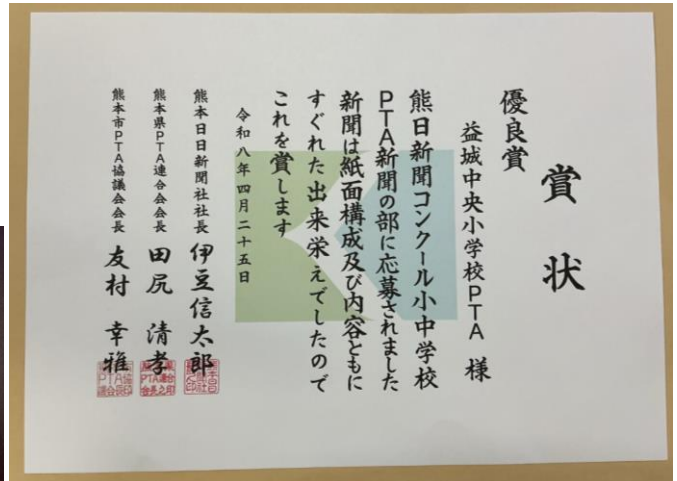 賞状
優良賞
益城中央小学校PTA 様
熊日新聞コンクール小中学校
PTA新聞の部に応募されました
新聞は紙面構成及び内容ともに
すぐれた出来栄えでしたので
これを賞します
令和八年四月二十五日
熊本日日新聞社社長 伊豆信太郎
熊本県PTA連合会会長 田尻清孝
熊本市PTA協議会会長 友村幸雅